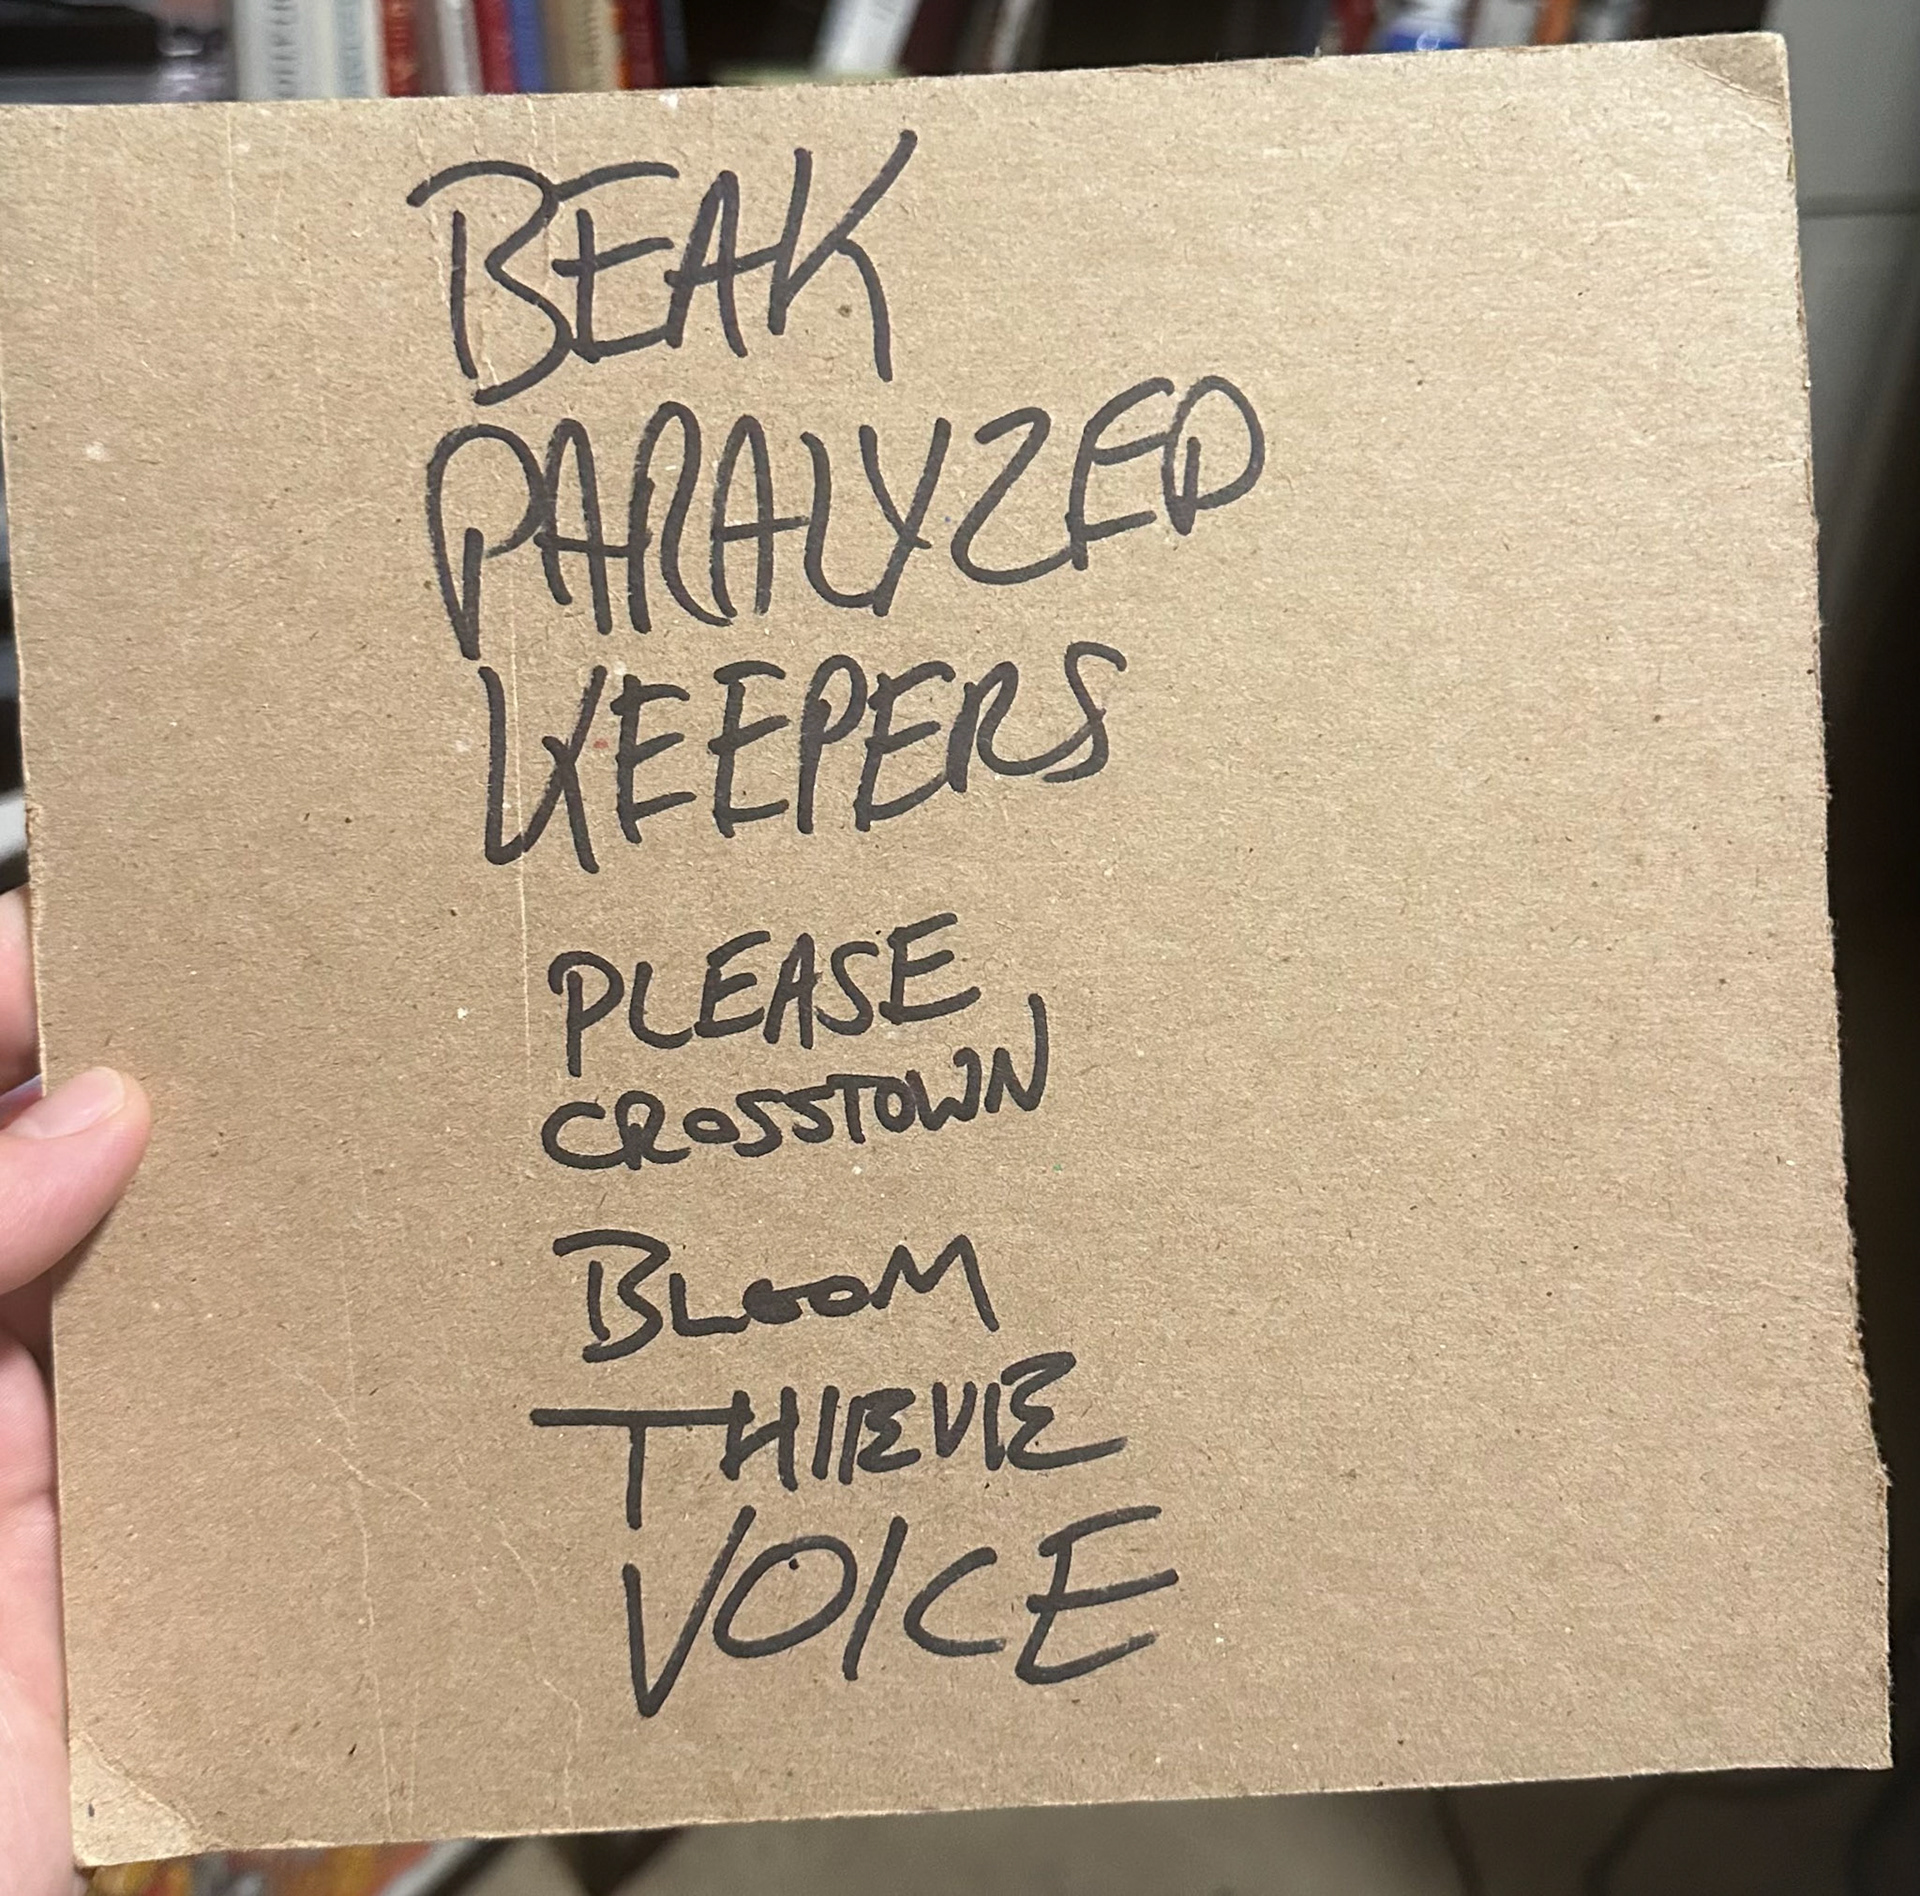 BEAK
PARALYZED
KEEPERS
PLEASE
CROSSTOWN
BLOOM
THIEVE
VOICE